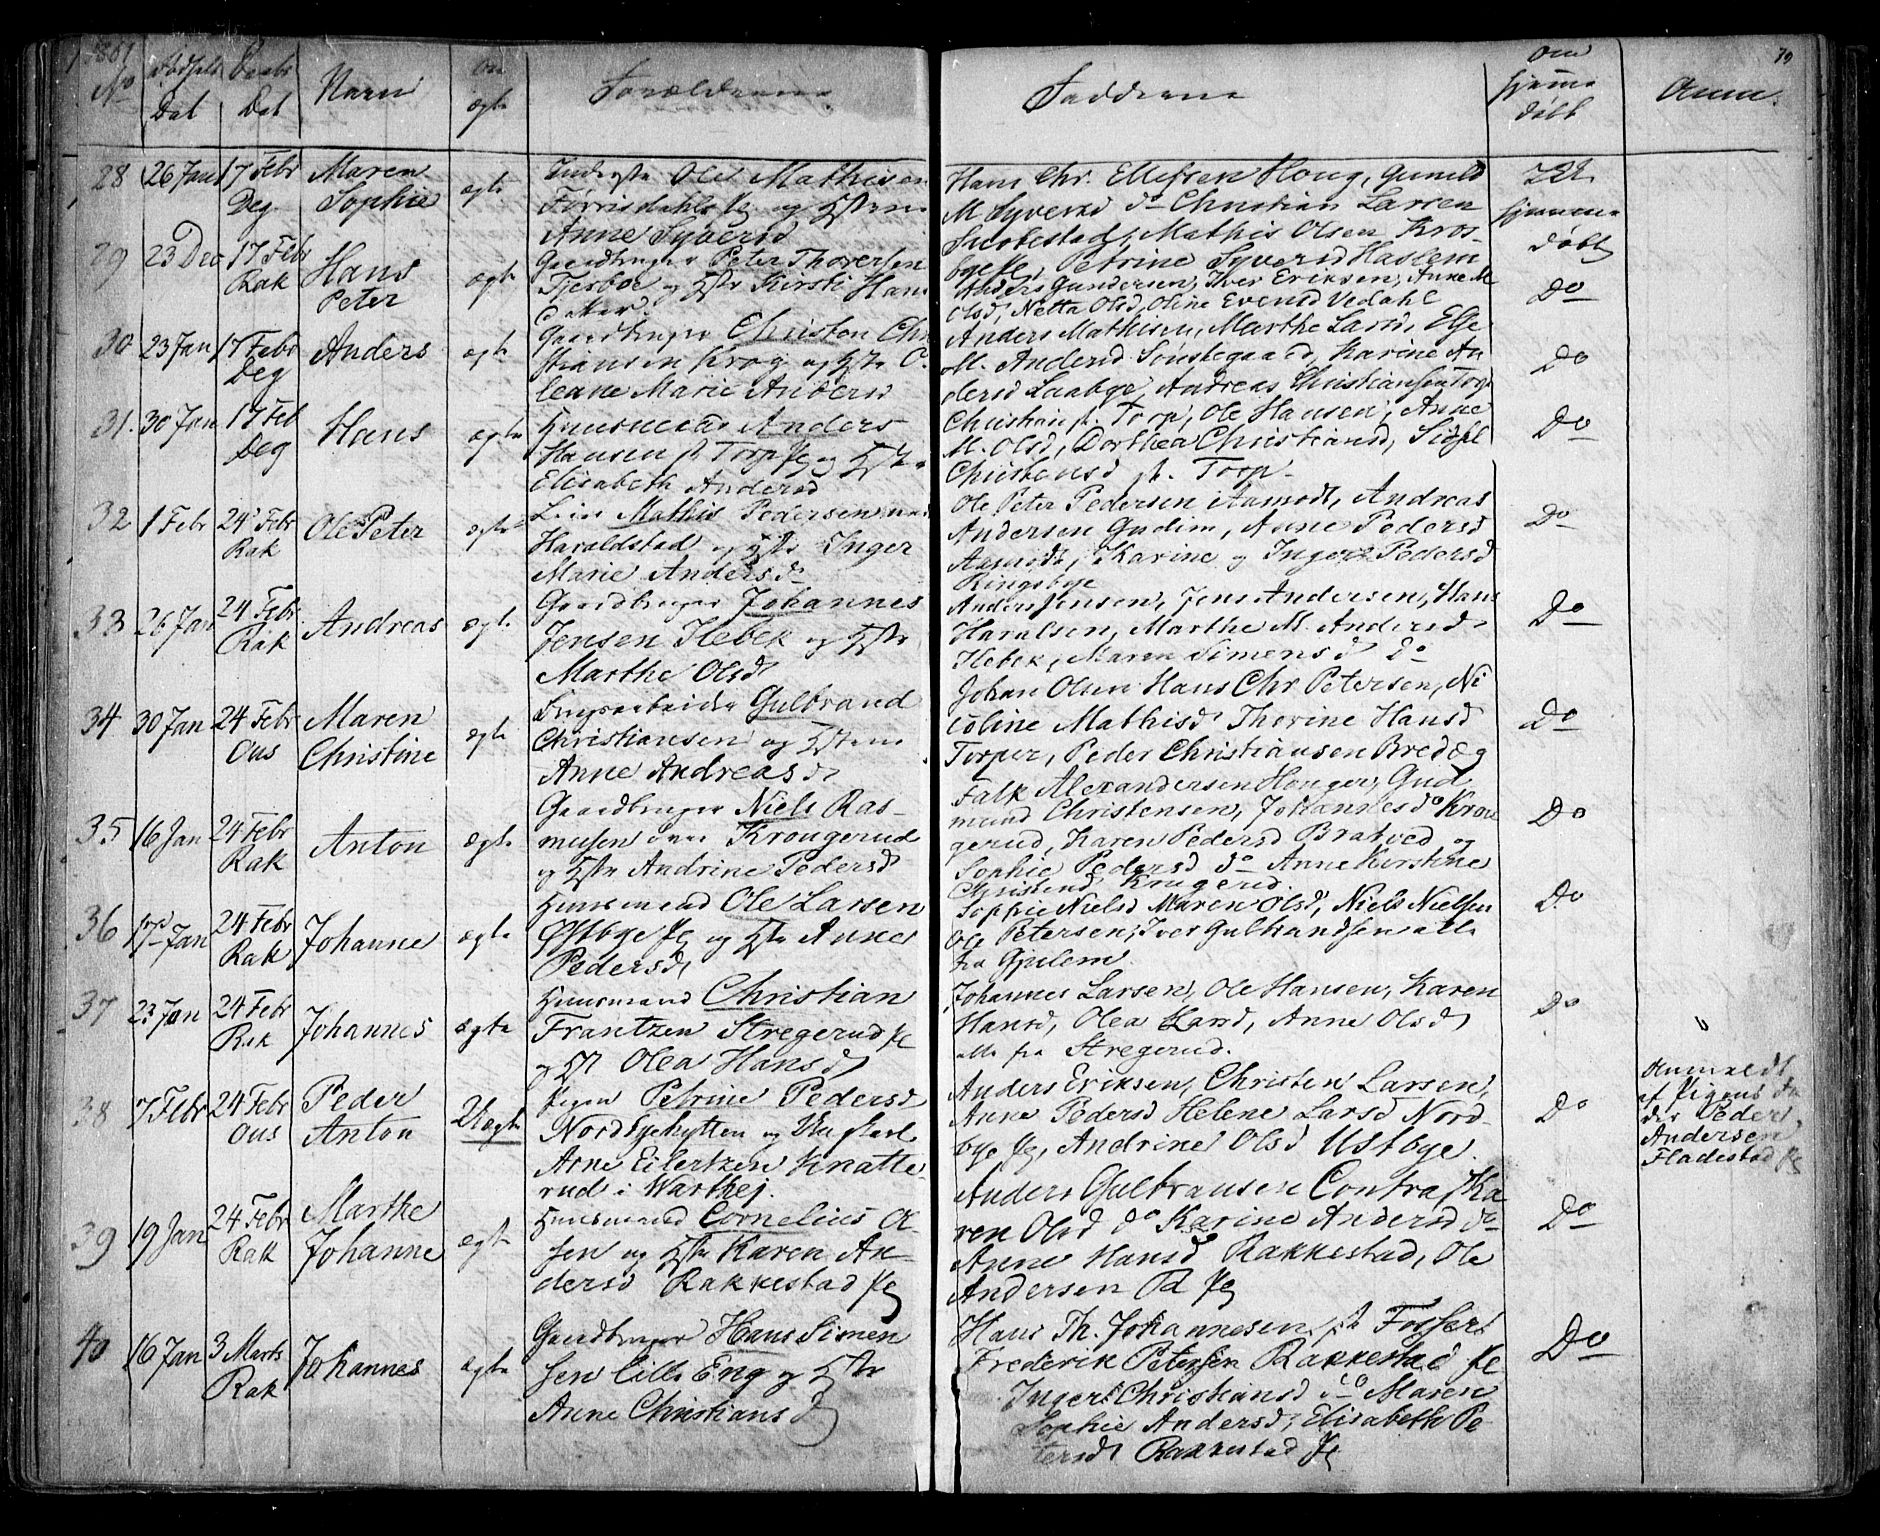 1861
No
Fødsels Dat
Daabs Dat
Navn
Om ægte
Forældrene
Fadderne
Om hjemmedøbt
Anm.
28 26 Jan 17 Febr Deg Maren Sophie ægte
Inderste Ole Mathisen
Førrisdahl pl og Hstru
Anne Syversd
Hans Chr. Ellefsen Houg, Gunild
M Syversd do Christian Larsen
Mathis Olsen Kros-
bye pl, Petrine Syversd Haslem
hjemme
døbt
29 23 Dec 17 Febr Rak Hans Peter ægte
Gaardbruger Peter Thoversen
Fjesboe og Hstr Kirsti Hans
daater.
Anders Gundersen, Iver Eriksen, Anne M
Olsd, Netta Olsd, Oline Evensd Vedahl
Do
30 23 Jan 17 Febr Deg Anders ægte
Gaardbruger Christen Chri
stiansen Krog og Hstr O-
leane Marie Andersd
Anders Mathisen, Marthe Larsd, Else
M. Andersd Sønstegaard, Karine An
dersd Saabye, Andreas Christiansen Torp
Do
31. 30 Jan 17 Feb Deg Hans ægte
Huusmand Anders
Hansen pl Torp pl og Hstr
Elisabeth Andersd
Christian pl. Torp, Ole Hansen, Anne
M. Olsd, Dorthea Christiansd, Sidsel
Christensd pl. Torp.
Do
32 1 Febr 24 Febr Rak Ole Peter ægte
Mathis Pedersen
Haraldstad og Hstr Inger
Marie Andersd
Ole Peter Pedersen Aamodt, Andreas
Andersen Gudim, Anne Pedersd
Aamodt, Karine og Inger Pedersd
Ringsbye
Do
33 26 Jan 24 Febr Rak Andreas ægte
Gaardbruger Johannes
Jensen Hebek og Hstr
Marthe Olsd
Anders Jensen, Jens Andersen, Hans
Haralsen, Marthe M. Andersd
Hebek, Maren Simensd do
Do
34 30 Jan 24 Febr Ous Maren Christine ægte
Gulbrand
Christiansen og Hstru
Anne Andreasd
Johan Olsen Hans Chr Petersen, Ni
coline Mathisd Thorine Hansd
Torper, Peder Christiansen Bredeg
Do
35 16 Jan 24 Febr Rak Anton ægte
Gaardbruger Niels Ras-
musen Krougerud
og Hstr Andrine Pedersd
Falk Alexandersen Houger, Gud
mund Christensen, Johannes do Krou
gerud, Karen Pedersd Bratved og
Sophie Pedersd do Anne Kirstine
Christensd Krugerud.
Do
36 Jan 24 Febr Rak Johanne ægte
Huusmand Ole Larsen
Østbye pl og Hstr Anne
Pedersd
Sophie Nielsd Maren Olsd, Niels Nielsen
Ole Petersen, Iver Gulbrandsen alle
fra Gjulem.
Do
37 23 Jan 24 Febr Rak Johannes ægte
Huusmand Christian
Frantzen Stregerud pl
og Hst Olea Hansd
Johannes Larsen, Ole Hansen, Karen
Hansd, Olea Larsd, Anne Olsd
alle fra Stregerud.
Do
38 7 Febr 24 Febr Ous Peder Anton Uægte
Pigen Petrine Pedersd
Nordbyehytten og Ungkarl
Arne Eilertzen Knatte
rud i Warthej.
Anders Eriksen, Christen Larsen,
Anne Pedersd Helene Larsd Nord-
bye pl, Andrine Olsd Ustbye.
Do
Anmeldt
af Pigens Fa
der Peder
Andersen
Fladestad pl
39 19 Jan 24 Febr Rak Marthe Johanne ægte
Huusmand Cornelius Ol
sen og Hstr Karen An-
dersd Rakkestad pl
Anders Gulbransen Contra, Ka
ren Olsd do Karine Andersd do
Anne Hansd Rakkestad, Ole
Andersen Rd pl
Do
40 16 Jan 3 Marts Rak Johannes ægte
Gaardbruger Hans Simen
sen Lille Eng og Hstr
Anne Christiansd
Hans Th. Johannesen pl Fosser
Frederik Petersen Rakkestad pl
Inger Christiansd do Maren
Sophie Andersd, Elisabeth Pe
tersdt Rakkestad pl
Do